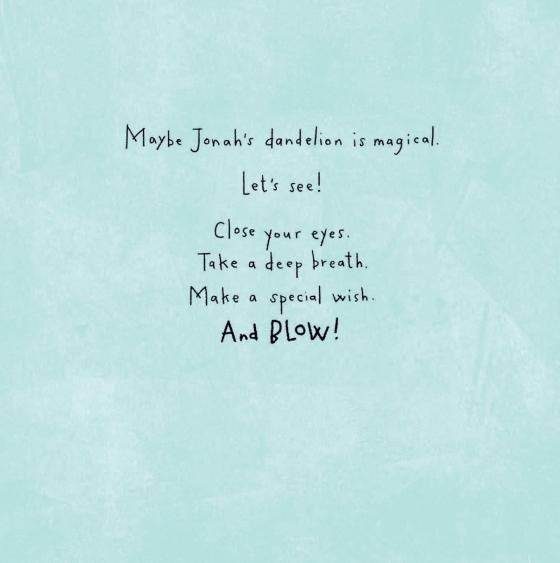 Maybe Jonah's dandelion is magical.
Let's see!
Close your eyes.
Take a deep breath.
Make a special wish.
And BLOW!